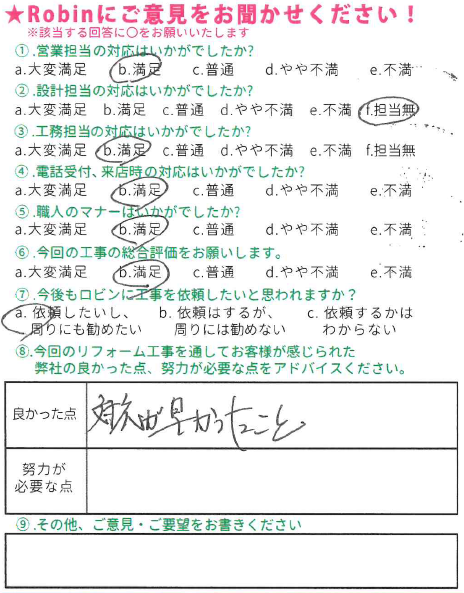 ★Robinにご意見をお聞かせください！
※該当する回答に〇をお願いいたします
①.営業担当の対応はいかがでしたか?
a.大変満足 b.満足 c.普通 d.やや不満 e.不満
②.設計担当の対応はいかがでしたか?
a.大変満足 b.満足 c.普通 d.やや不満 e.不満 f.担当無
③.工務担当の対応はいかがでしたか?
a.大変満足 b.満足 c.普通 d.やや不満 e.不満 f.担当無
④.電話受付、来店時の対応はいかがでしたか?
a.大変満足 b.満足 c.普通 d.やや不満 e.不満
⑤.職人のマナーはいかがでしたか?
a.大変満足 b.満足 c.普通 d.やや不満 e.不満
⑥.今回の工事の総合評価をお願いします。
a.大変満足 b.満足 c.普通 d.やや不満 e.不満
⑦.今後もロビンに工事を依頼したいと思われますか？
a. 依頼したいし、 b. 依頼はするが、 c. 依頼するかは
周りにも勧めたい 周りには勧めない わからない
⑧.今回のリフォーム工事を通してお客様が感じられた
弊社の良かった点、努力が必要な点をアドバイスください。
良かった点 対応が早かったこと
努力が
必要な点
⑨.その他、ご意見・ご要望をお書きください